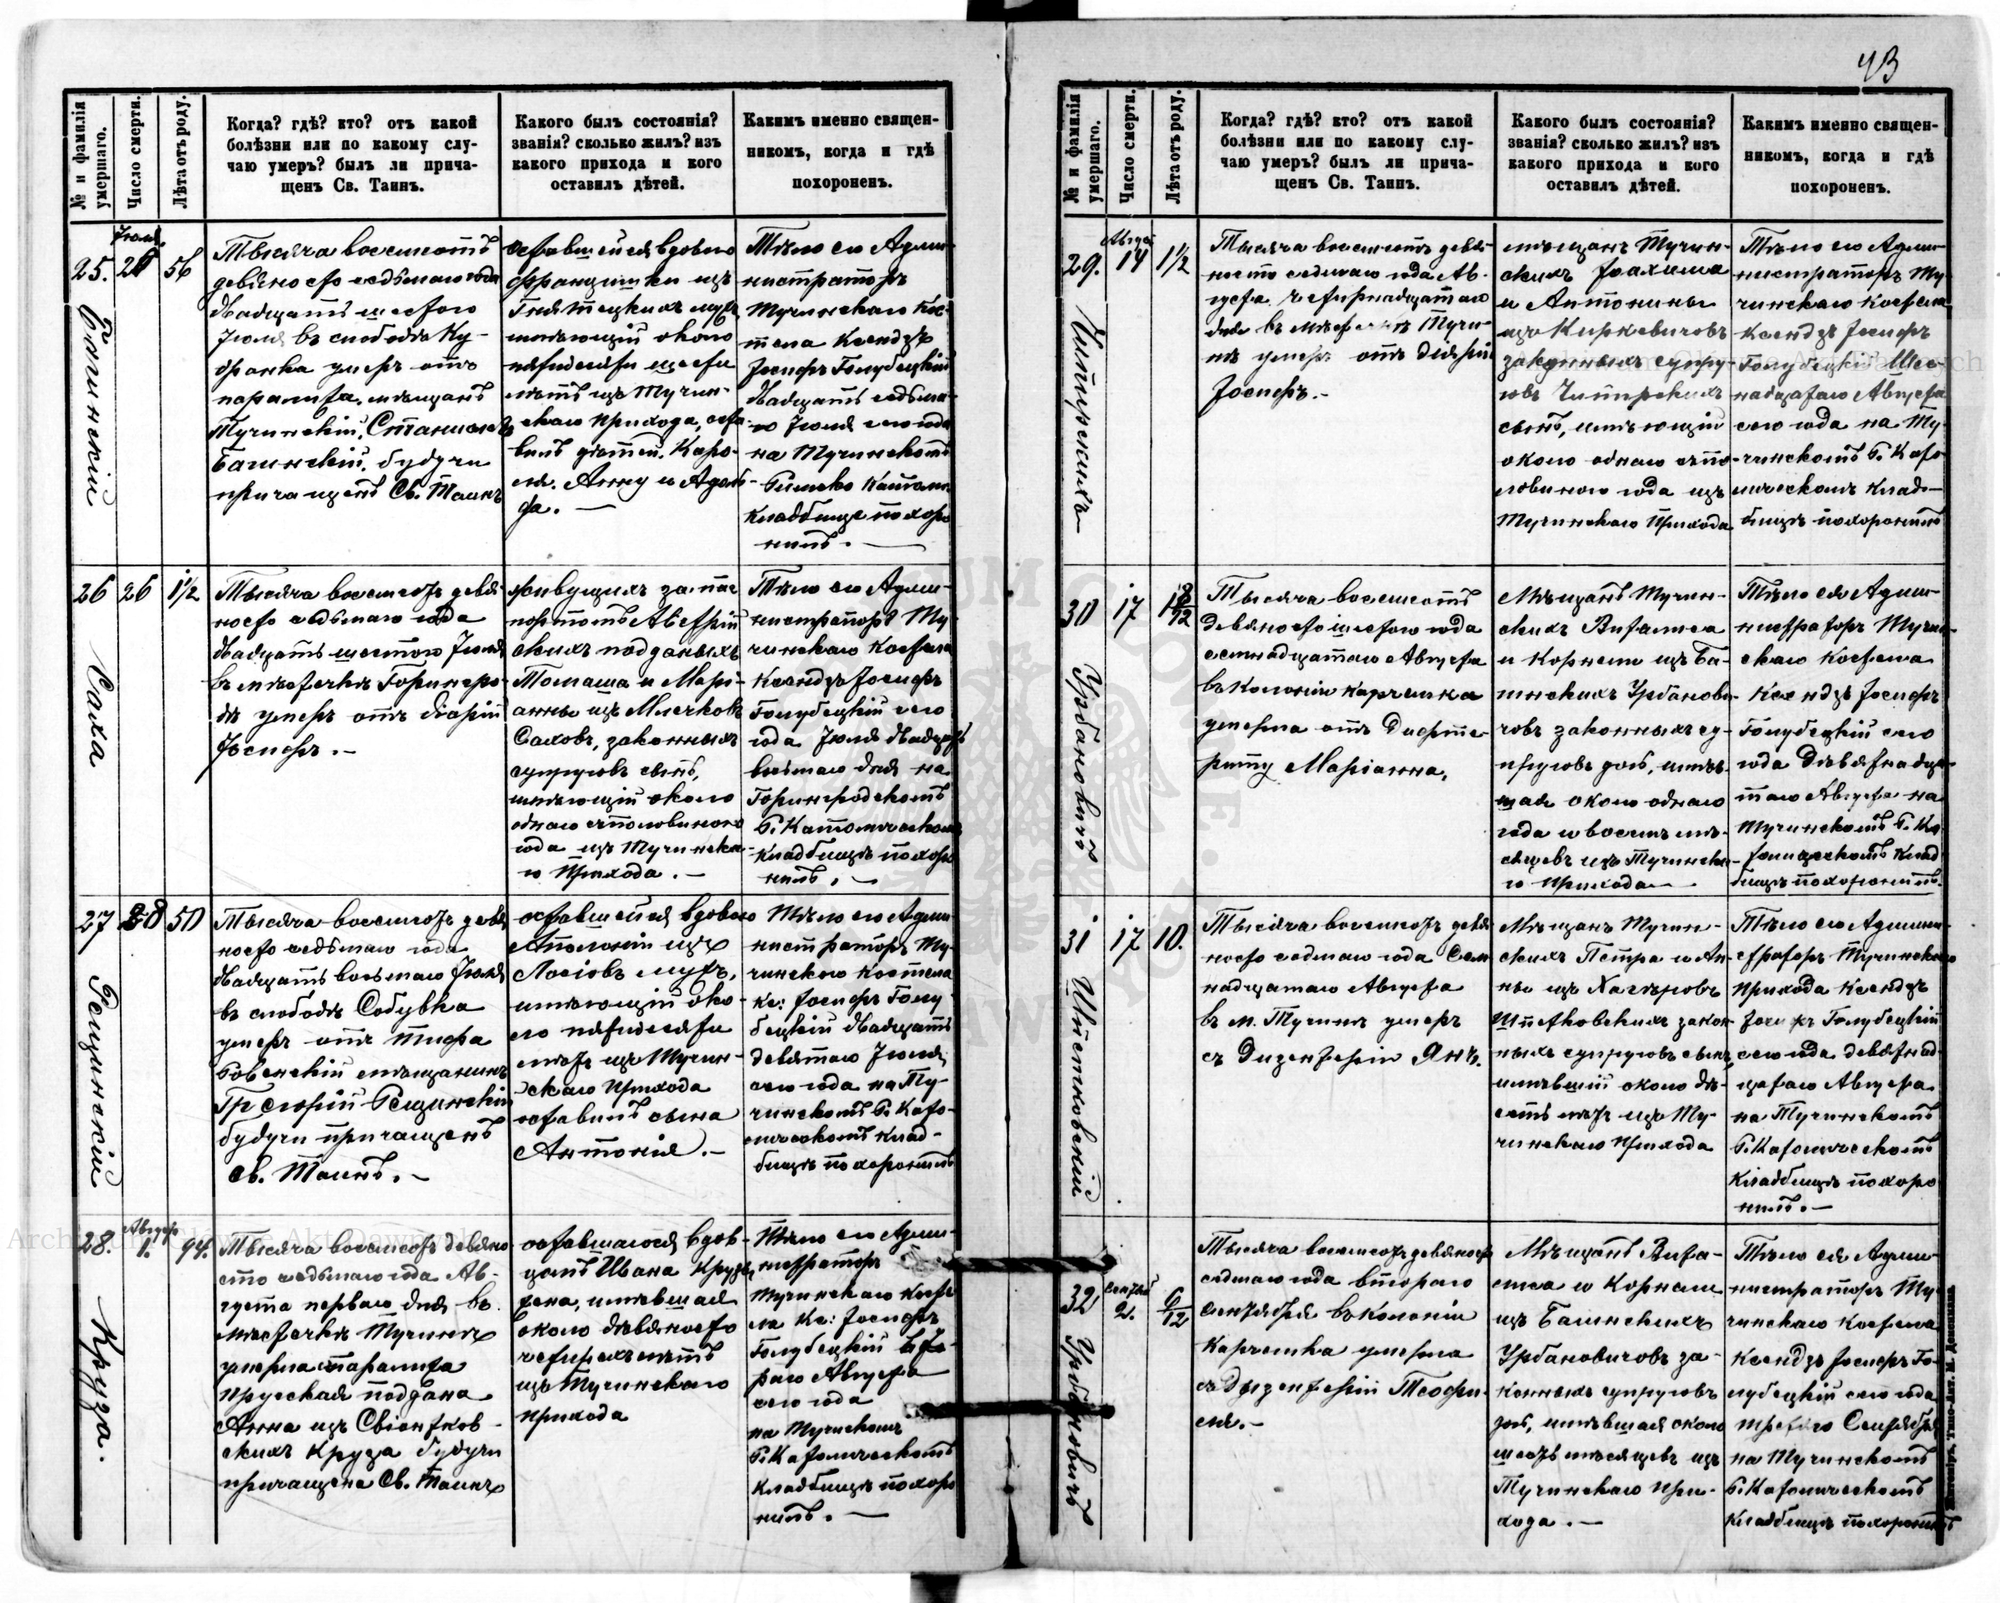 43
№ и фамилія умершаго.
Число смерти.
Лѣта отъ роду.
Когда? гдѣ? кто? отъ какой
болѣзни или по какому слу-
чаю умеръ? былъ ли прича-
щенъ Св. Таинъ.
Какого былъ состоянія?
званія? сколько жилъ? изъ
какого прихода и кого
оставилъ дѣтей.
Какимъ именно священ-
никомъ, когда и гдѣ
похороненъ.
25.
Іюля
26
56
Тысяча восемсотъ
девяносто седьмаго года
двадцать шестого
Іюля въ слободѣ Ку-
дранка умеръ отъ
паралижа мѣщанъ
Тучинскій, Станиславъ
Багинскій, будучи
причащенъ Св. Таинъ
оставшейся вдовою
Францишки изъ
мужъ
имѣющій около
пятидесяти шести
лѣтъ изъ Тучин-
скаго прихода, оста-
вилъ дѣтей: Каро-
ля, Анну и Адоль-
фа. —
Тѣло его Адми-
нистраторъ
Тучинскаго Кос-
тела Ксендзъ
Іосифъ Голубецкій
двадцать седьма-
го Іюля сего года
на Тучинскомъ
Римско Католи.
Кладбище похоро
нилъ. —
26
26
1½
Саха
Тысяча восемсотъ девя-
носто седьмаго года
двадцать шестого Іюля
въ мѣстечкѣ Горингро-
дѣ умеръ отъ діаріи
Іосифъ. —
живущихъ за пас
портомъ Австрій
скихъ подданыхъ
Томаша и Мары-
анны изъ Млечковъ
Саховъ, законныхъ
супруговъ сынъ,
имѣющій около
одного съ половиною
года изъ Тучинска-
го Прихода. —
Тѣло его Адми-
нистраторъ Ту-
чинскаго Костела
Ксендзъ Іосифъ
Голубецкій сего
года Іюля двадцать
восьмаго дня на
Горингродскомъ
Р. Католическомъ
Кладбищѣ похоро
нилъ. —
27
28
50
Тысяча восемсотъ девя
носто седьмаго года
двадцать восьмаго Іюля
въ слободѣ Собувка
умеръ отъ тифа
Ровенскій мѣщанинъ
Грегорій
будучи причащенъ
св. Таинъ. —
оставшейся вдовою
Аполоніи изъ
Лосіовъ мужъ,
имѣющій око-
ло пятидесяти
лѣтъ изъ Тучин-
скаго Прихода
оставилъ сына
Антонія. —
Тѣло его Адми-
нистраторъ Ту-
чинскаго Костела
Кс: Іосифъ Голу-
бецкій двадцать
девятаго Іюля
сего года на Ту-
чинскомъ Р. Като-
лическомъ Клад-
бищѣ похоронилъ
28.
Август
1.
94.
Круза.
Тысяча восемсотъ девяно
сто седьмаго года Ав-
густа перваго дня въ
мѣстечкѣ Тучинѣ
умерла паралижа
прусская поддана
Анна изъ Свіонтков-
скихъ Круза будучи
причащена Св. Таинъ
оставшагося вдов-
цомъ Ивана Крузы
жена, имѣвшая
около девяносто
четырехъ лѣтъ
изъ Тучинскаго
прихода
Тѣло его Адми-
нистраторъ
Тучинскаго Косте
ла Кс: Іосифъ
Голубецкій вто-
раго Августа
сего года
на Тучиском
Р. Католическомъ
Кладбищѣ похоро
нилъ. —
№ и фамилія умершаго.
Число смерти.
Лѣта отъ роду.
Когда? гдѣ? кто? отъ какой
болѣзни или по какому слу-
чаю умеръ? былъ ли прича-
щенъ Св. Таинъ.
Какого былъ состоянія?
званія? сколько жилъ? изъ
какого прихода и кого
оставилъ дѣтей.
Какимъ именно священ-
никомъ, когда и гдѣ
похороненъ.
29.
Август
14
1½
Тысяча восемсотъ девя-
носто седмаго года Ав-
густа четырнадцатаго
дня въ мѣстечкѣ Тучи-
нѣ умеръ отъ діаріи
Іосифъ. —
мѣщанъ Тучин-
скихъ Іоахима
и Антонины
изъ Киркевичовъ
законныхъ супру-
говъ
сынъ, имѣющій
около одного съ по-
ловиною года изъ
Тучинскаго Прихода
Тѣло его Адми-
нистраторъ Ту-
чинскаго Костела
Ксендзъ Іосифъ
Голубецкій Шес-
надцатаго Августа
сего года на Ту-
чинскомъ Р. Като-
лическомъ Клад-
бищѣ похоронилъ
30
17
1 8/12
Урбановичъ
Тысяча восемсотъ
девяносто шестого года
семнадцатаго Августа
въ Колоніи Карчемка
умерла отъ Дифте-
риту Маріанна.
Мѣщанъ Тучин-
скихъ Виталиса
и Корнели изъ Ба-
гинскихъ Урбанови-
човъ законныхъ су-
пруговъ дочь, имѣв-
шая около одного
года и восемъ мѣ-
сяцевъ изъ Тучинска-
го прихода —
Тѣло ея Адми-
нистраторъ Тучин-
скаго Костела
Ксендзъ Іосифъ
Голубецкій сего
года девятнадца-
таго Августа на
Тучинскомъ Р. Ка-
толическомъ Клад
бищѣ похоронилъ.
31
17
10.
Тысяча восемсотъ девя
носто седмаго года Сем
надцатаго Августа
въ м. Тучинѣ умеръ
съ Дизентеріи Янъ.
Мѣщанъ Тучин-
скихъ Петра и Ан-
ны изъ
закон-
ныхъ супруговъ сынъ,
имѣвшій около де-
сять лѣтъ изъ Ту-
чинскаго прихода
Тѣло его Админи-
страторъ Тучинскаго
Прихода Ксендзъ
Іосифъ Голубецкій
сего года девятнад-
цатаго Августа
на Тучинскомъ
Р. Католическомъ
Кладбищѣ похоро
нилъ. —
32
Сентяб
2.
6/12
Урбановичъ
Тысяча восемсотъ девяносто
седмаго года втораго
Сентября въ Колоніи
Карчемка умерла
съ Дызентеріи Теофи-
ля. —
Мѣщанъ Вита-
лиса и Корнели
изъ Багинскихъ
Урбановичовъ за-
конныхъ супруговъ
дочь, имѣвшая около
шесть мѣсяцевъ изъ
Тучинскаго при-
хода. —
Тѣло ея Адми-
нистраторъ Ту-
чинскаго Костела
Ксендзъ Іосифъ Го-
лубецкій сего года
третяго Сентября
на Тучинскомъ
Р. Католическомъ
Кладбищѣ похоронилъ